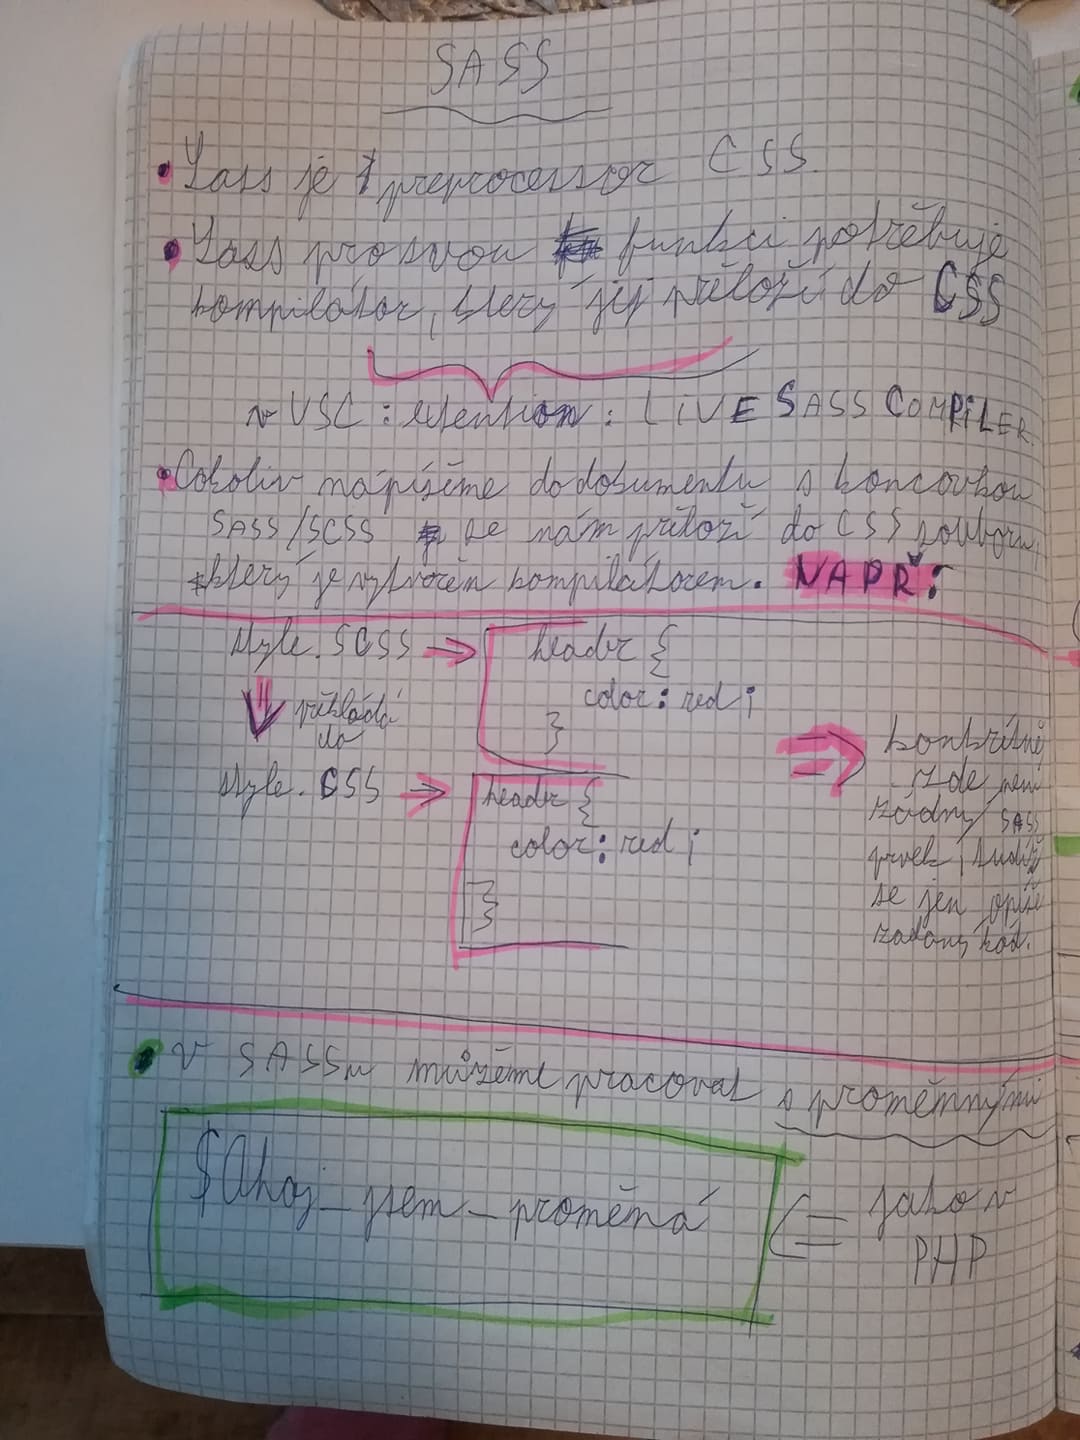 SASS
• Sass je preprocessor CSS.
• Sass pro svou funkci potřebuje
kompilátor, který jej přeloží do CSS
v VSC : extention : LIVE SASS COMPILER
• Cokoliv napíšeme do dokumentu s koncovkou
SASS/SCSS se nám přeloží do CSS souboru,
který je vytvořen kompilátorem. NAPŘ:
style.SCSS ⇒ header {
color: red;
}
⇓ překládá
do
style.CSS ⇒ header {
color: red;
}
⇒ konkrétně
zde není
žádný SASS
prvek, tudíž
se jen opíše
zadaný kód.
• V SASSu můžeme pracovat s proměnnými
$Ahoj_jsem_proměná
⇐ jako v
PHP